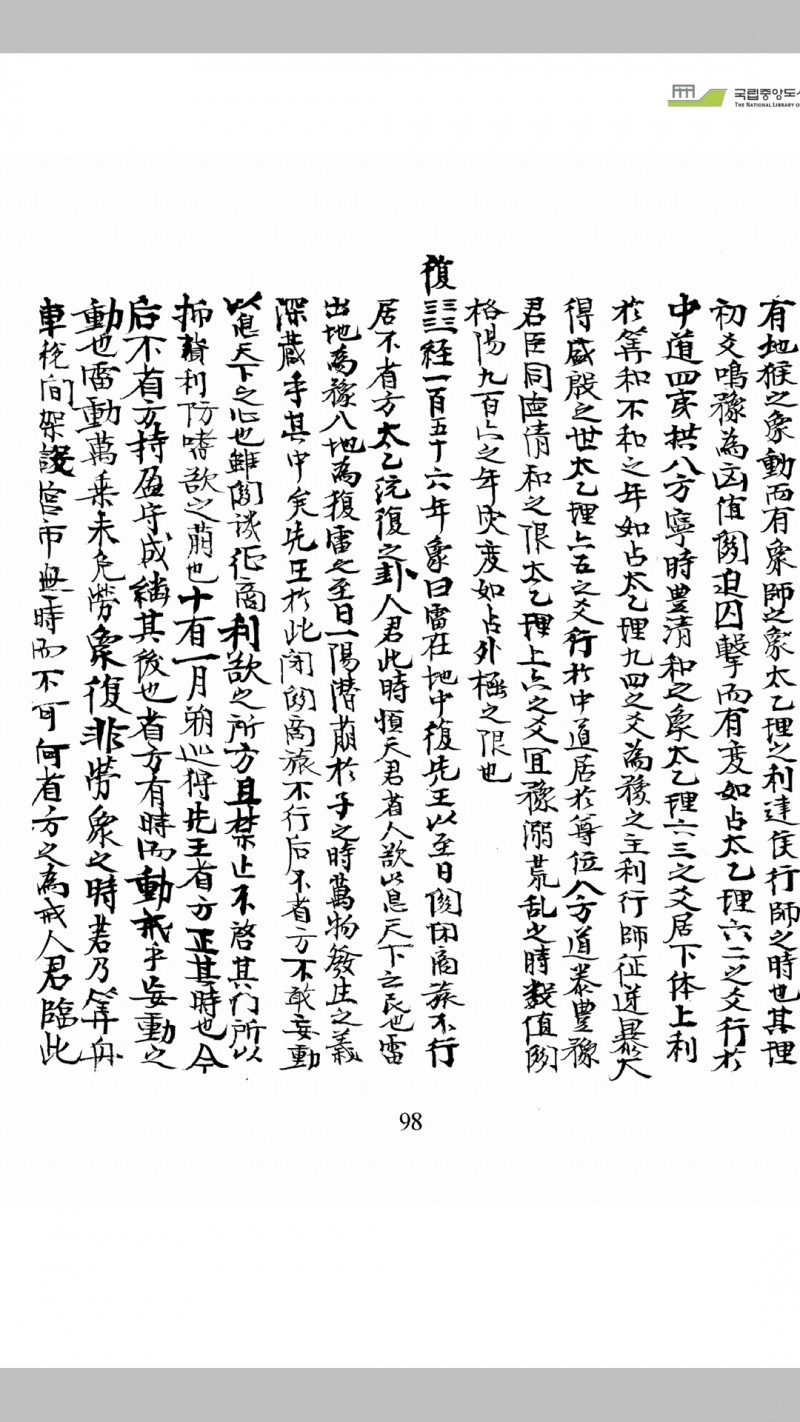 국립중앙도서
THE NATIONAL LIBRARY OF
有地猴之象動而有象師之象太乙理之利建侯行師之時也其理
初爻鳴豫為凶值關迫囚擊而有変如占太乙理六二之爻行於
中道四夷拱八方寧時豊清和之象太乙理六三之爻居下体上利
於筭和不和之年如占太乙理九四之爻為豫之主利行師征逆暴大
得盛殷之世太乙理六五之爻行於中道居於尊位八方道泰豊豫
君臣同 清和之限太乙理上六之爻冝豫溺荒乱之時数值關
格陽九百六之年灾变如占外極之限也
復 経一百五十六年象曰雷在地中復先王以至日關閉商旅不行
后不省方太乙統復之卦人君此時順天君省人欲以息天下之民也雷
出地為豫入地為復雷之至日一陽潜萠於子之時萬物發生之義
深蔵乎其中矣先王於此閉關商旅不行后不省方不敢妄動
以息天下之心也雖關譏征商利欲之所方且禁止不啓其门所以
抑 利防嗜欲之萠也十有一月朔巡狩先王省方正其時也今
后不省方持盈守成繕其後也省方有時而動戒乎妄動之
動也雷動萬乗未免勞衆復非勞衆之時若乃筭舟
車稅间架 宮市無時而不可何省方之為戒人君臨此
98